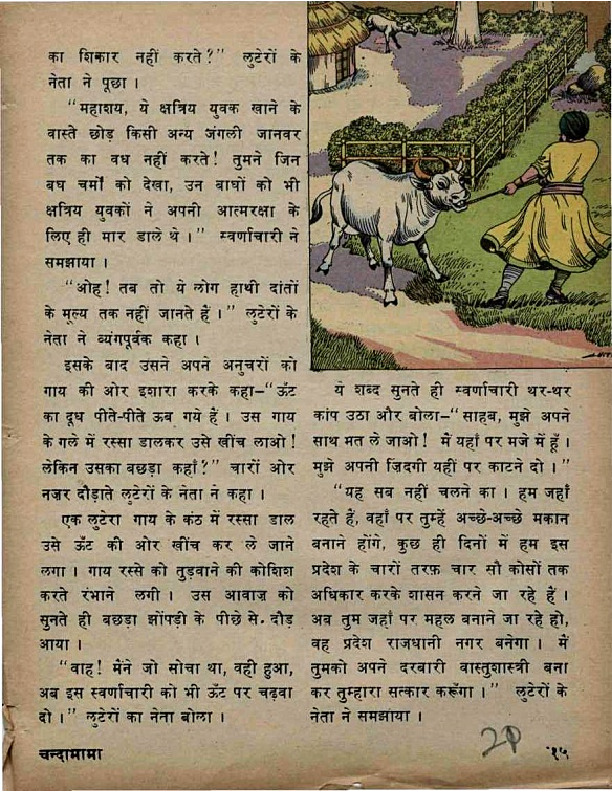 का शिकार नहीं करते?" लुटेरों के
नेता ने पूछा ।
"महाशय, ये क्षत्रिय युवक खाने के
वास्ते छोड़ किसी अन्य जंगली जानवर
तक का वध नहीं करते! तुमने जिन
बघ चर्मों को देखा, उन बाघों को भी
क्षत्रिय युवकों ने अपनी आत्मरक्षा के
लिए ही मार डाले थे ।" स्वर्णाचारी ने
समझाया ।
"ओह! तब तो ये लोग हाथी दांतों
के मूल्य तक नहीं जानते हैं ।" लुटेरों के
नेता ने व्यंगपूर्वक कहा ।
इसके बाद उसने अपने अनुचरों को
गाय की ओर इशारा करके कहा-"ऊँट
का दूध पीते-पीते ऊब गये हैं । उस गाय
के गले में रस्सा डालकर उसे खींच लाओ!
लेकिन उसका बछड़ा कहाँ?" चारों ओर
नज़र दौड़ाते लुटेरों के नेता ने कहा ।
एक लुटेरा गाय के कंठ में रस्सा डाल
उसे ऊँट की ओर खींच कर ले जाने
लगा । गाय रस्से को तुड़वाने की कोशिश
करते रंभाने लगी । उस आवाज़ को
सुनते ही बछड़ा झोंपड़ी के पीछे से दौड़
आया ।
"वाह! मैंने जो सोचा था, वही हुआ,
अब इस स्वर्णाचारी को भी ऊँट पर चढ़वा
दो ।" लुटेरों का नेता बोला ।
ये शब्द सुनते ही स्वर्णाचारी थर-थर
कांप उठा और बोला-"साहब, मुझे अपने
साथ मत ले जाओ! मैं यहाँ पर मजे में हूँ ।
मुझे अपनी ज़िंदगी यहीं पर काटने दो ।"
"यह सब नहीं चलने का । हम जहाँ
रहते हैं, वहाँ पर तुम्हें अच्छे-अच्छे मकान
बनाने होंगे, कुछ ही दिनों में हम इस
प्रदेश के चारों तरफ़ चार सौ कोसों तक
अधिकार करके शासन करने जा रहे हैं ।
अब तुम जहाँ पर महल बनाने जा रहे हो,
वह प्रदेश राजधानी नगर बनेगा । मैं
तुमको अपने दरबारी वास्तुशास्त्री बना
कर तुम्हारा सत्कार करूँगा ।" लुटेरों के
नेता ने समझाया ।
चन्दामामा
१५